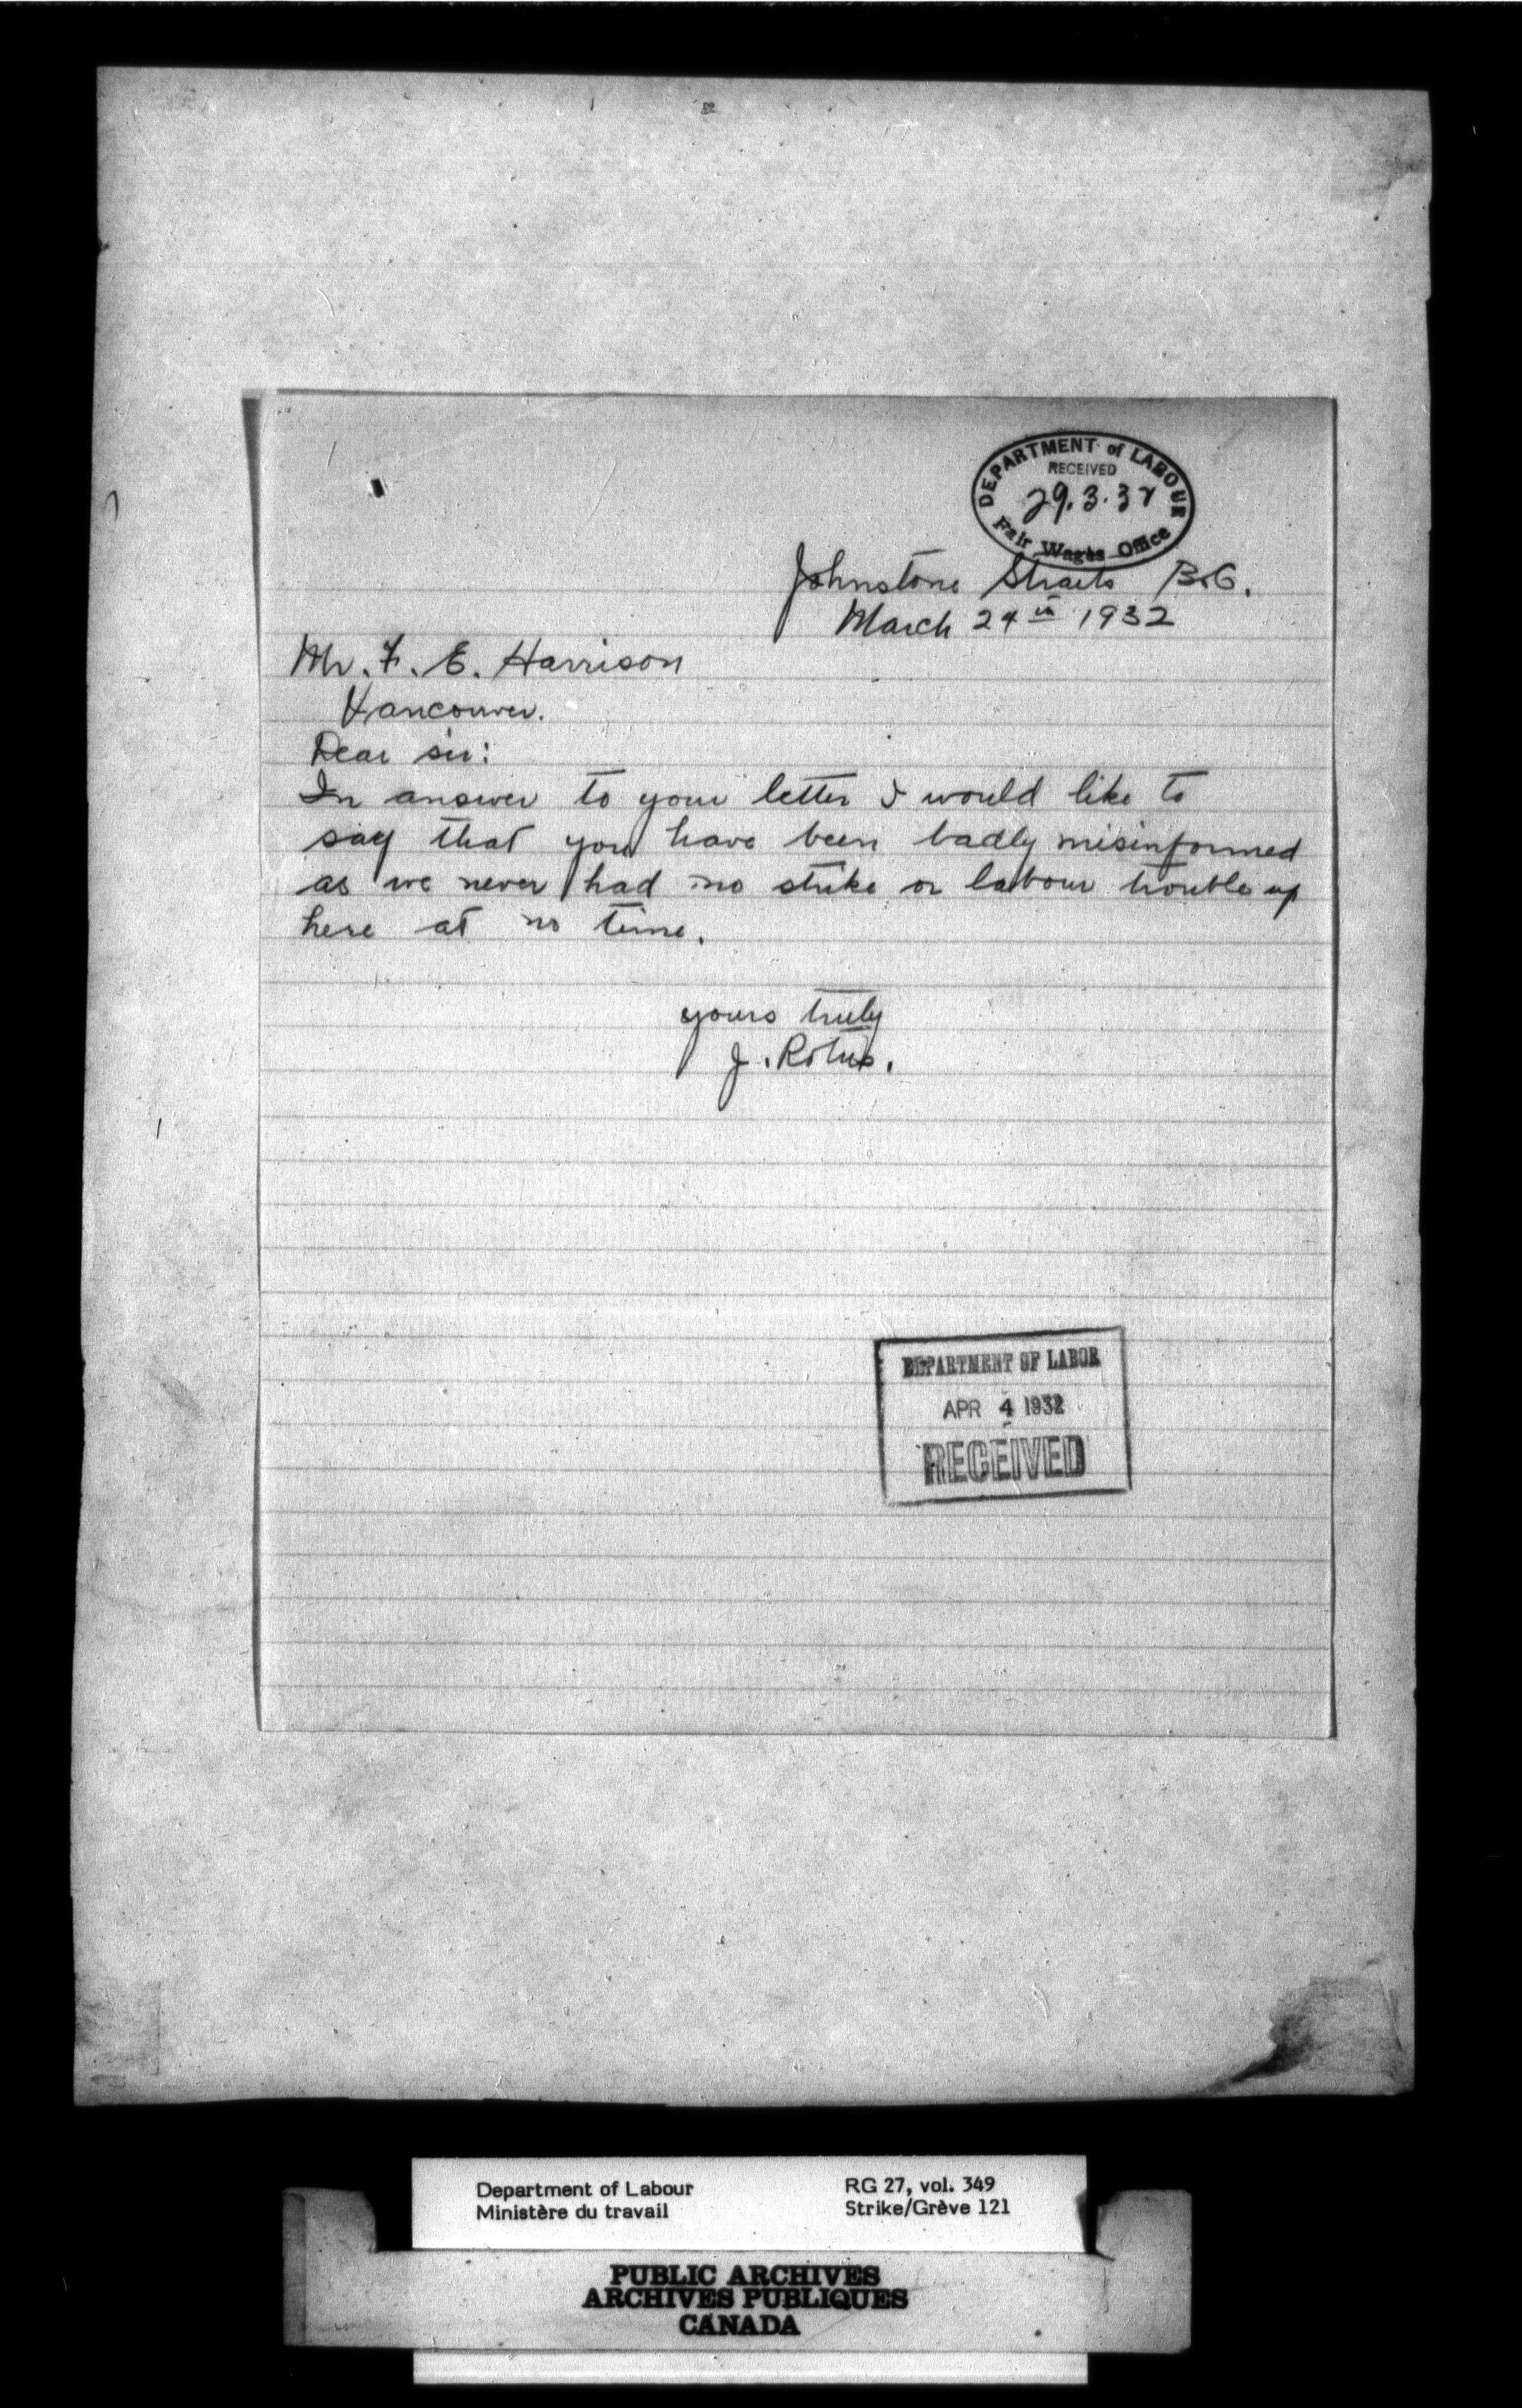 DEPARTMENT of LABOUR
RECEIVED
29.3.32
Fair Wages Office
Johnstone Straits B.C.
March 24th 1932
Mr. F. E. Harrison
Vancouver.
Dear sir:
In answer to your letter I would like to
say that you have been badly misinformed
as we never had no strike or labour trouble up
here at no time.
yours truly
J.
DEPARTMENT OF LABOR
APR 4 1932
RECEIVED
Department of Labour RG 27, vol. 349
Ministère du travail Strike/Grève 121
PUBLIC ARCHIVES
ARCHIVES PUBLIQUES
CANADA